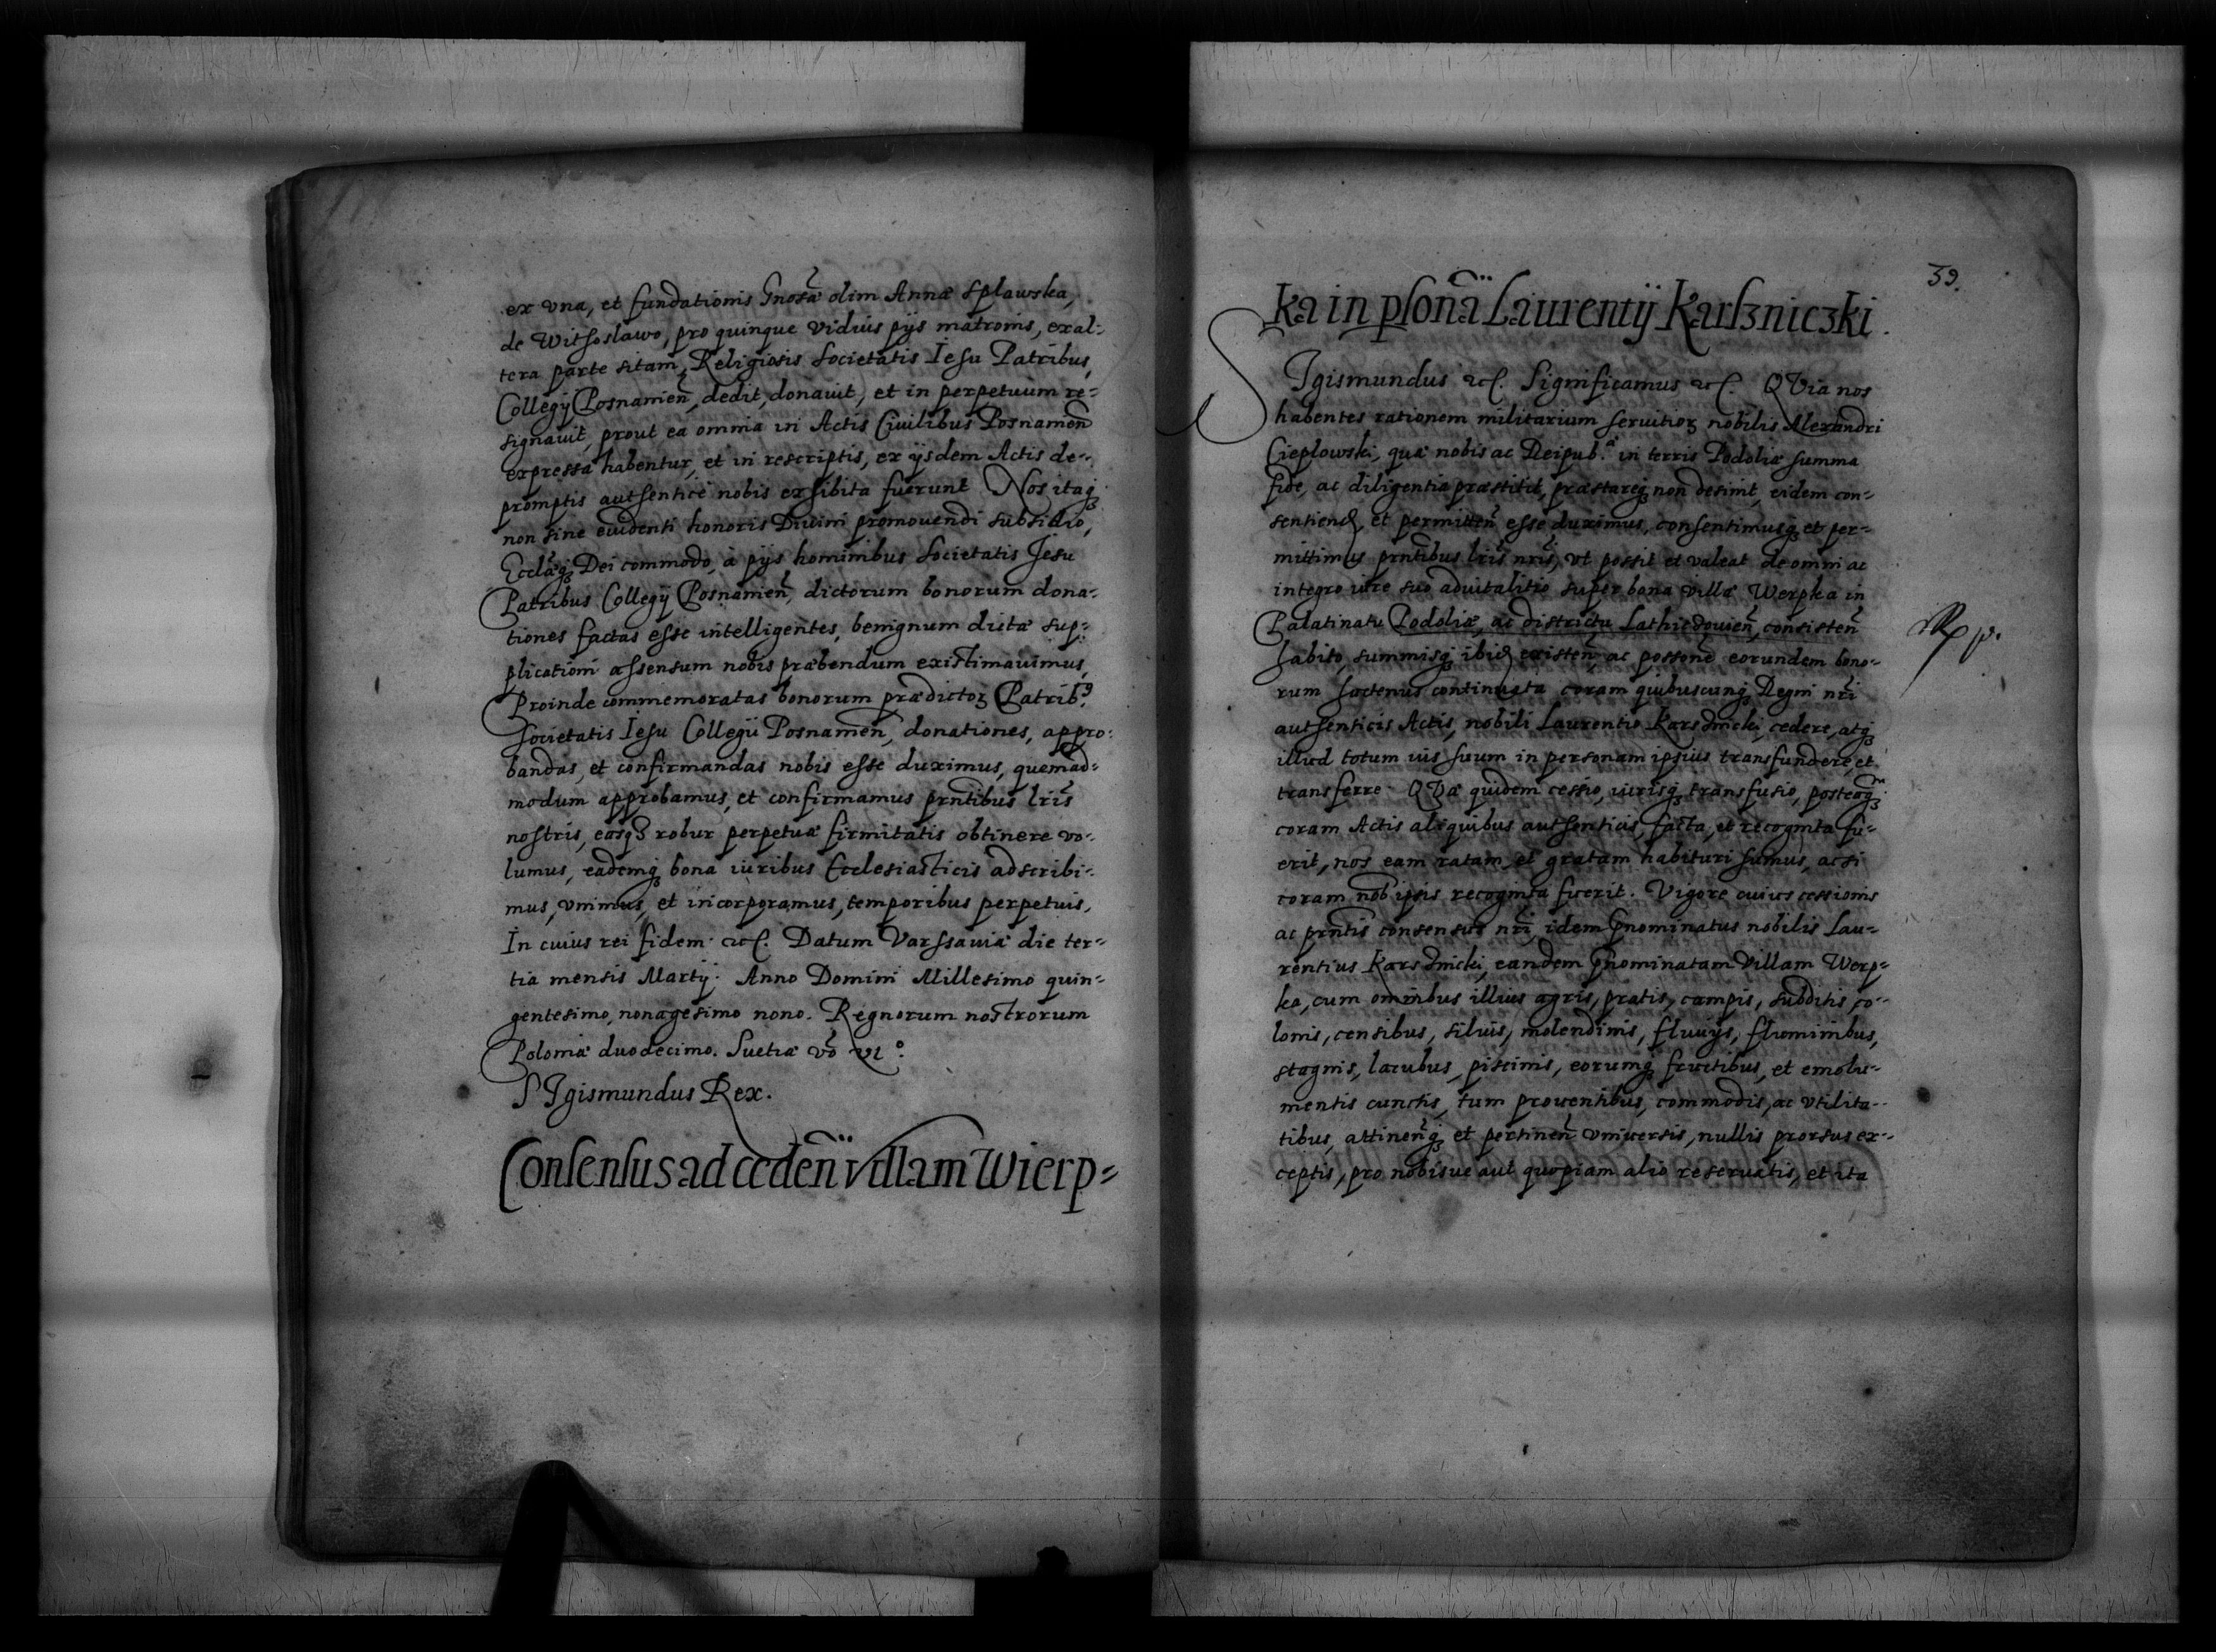 ex vna, et fundationis Gnosæ olim Annæ Splawska,
de Withoslawo, pro quinque viduis pijs matronis, ex al-
tera parte sitam, Religiosis Societatis Iesu Patribus,
Collegij Posnanien̄, dedit, donauit, et in perpetuum re-
signauit, prout ea omnia in Actis Ciuilibus Posnanien̄
expressa habentur, et in rescriptis, ex ijsdem Actis de-
promptis authenticè nobis exhibita fuerunt Nos itaqꝫ
non sine euidenti honoris Diuini promouendi subsidio,
Eccl̄æqꝫ Dei commodo, à pijs hominibus Societatis Jesu
Patribus Collegij Posnanien̄, dictorum bonorum dona-
tiones factas esse intelligentes, benignum dictæ sup-
plicationi assensum nobis præbendum existimauimus,
Proinde commemoratas bonorum prædictoꝝ Patribꝰ
Societatis Iesu Collegij Posnanien̄, donationes, appro-
bandas, et confirmandas nobis esse duximus, quemad-
modum approbamus, et confirmamus pn̄tibus lr̄is
nostris, easqꝫ robur perpetuæ firmitatis obtinere vo-
lumus, eademqꝫ bona iuribus Ecclesiasticis adscribi-
mus, vnimus, et incorporamus, temporibus perpetuis.
In cuius rei fidem etc. Datum Varssauiæ die ter-
tia mensis Martij. Anno Domini Millesimo quin-
gentesimo, nonagesimo nono. Regnorum nostrorum
Poloniæ duodecimo. Suetiæ vō vi°.
SIgismundus Rex.
Consensus ad ceden̄ villam Wierp-
39.
ka in pson̄ā Laurentij Karszniczki.
SIgismundus etc. Significamus etc. QVia nos
habentes rationem militarium seruitioꝝ nobilis Alexandri
Cieplowski, quæ nobis ac Reipub.ᵃ in terris Podoliæ summa
fide, ac diligentia præstitit, præstareqꝫ non desinit, eidem con-
sentiend, et permitten̄ esse duximus, consentimusqꝫ et per-
mittimus prn̄tibus lr̄is nr̄is, vt possit et valeat de omni ac
integro iure suo aduitalitio super bona villæ Werpka in
Palatinatu Podoliæ, ac districtu Lathiczouien̄, consisten̄
habito, summisqꝫ ibid existen̄, ac posson̄e eorundem bono-
rum hactenus continuata coram quibuscunqꝫ Regni nr̄i
authenticis Actis, nobili Laurentio Karsznicki, cedere, atqꝫ
illud totum ius suum in personam ipsius transfundere, et
transferre. QVæ quidem cessio, iurisqꝫ transfusio, posteaqꝫ
coram Actis aliquibus authenticis, facta, et recognita fu-
erit, nos eam ratam, et gratam habituri sumus, ac si
coram nob̄ ipsis recognita fuerit. Vigore cuius cessionis
ac prn̄tis consensus nr̄i, idem p̄nominatus nobilis Lau-
rentius Karsznicki, eandem p̄nominatam Villam Werp-
ka, cum om̄ibus illius agris, pratis, campis, subditis, co-
lonis, censibus, siluis, molendinis, fluuijs, fluminibus,
stagnis, lacubus, piscinis, eorumqꝫ fructibus, et emolu-
mentis cunctis, tum prouentibus, commodis, ac vtilita-
tibus, attinen̄qꝫ et pertinen̄ vniuersis, nullis prorsus ex-
ceptis, pro nobisue aut quopiam alio reseruatis, et ita